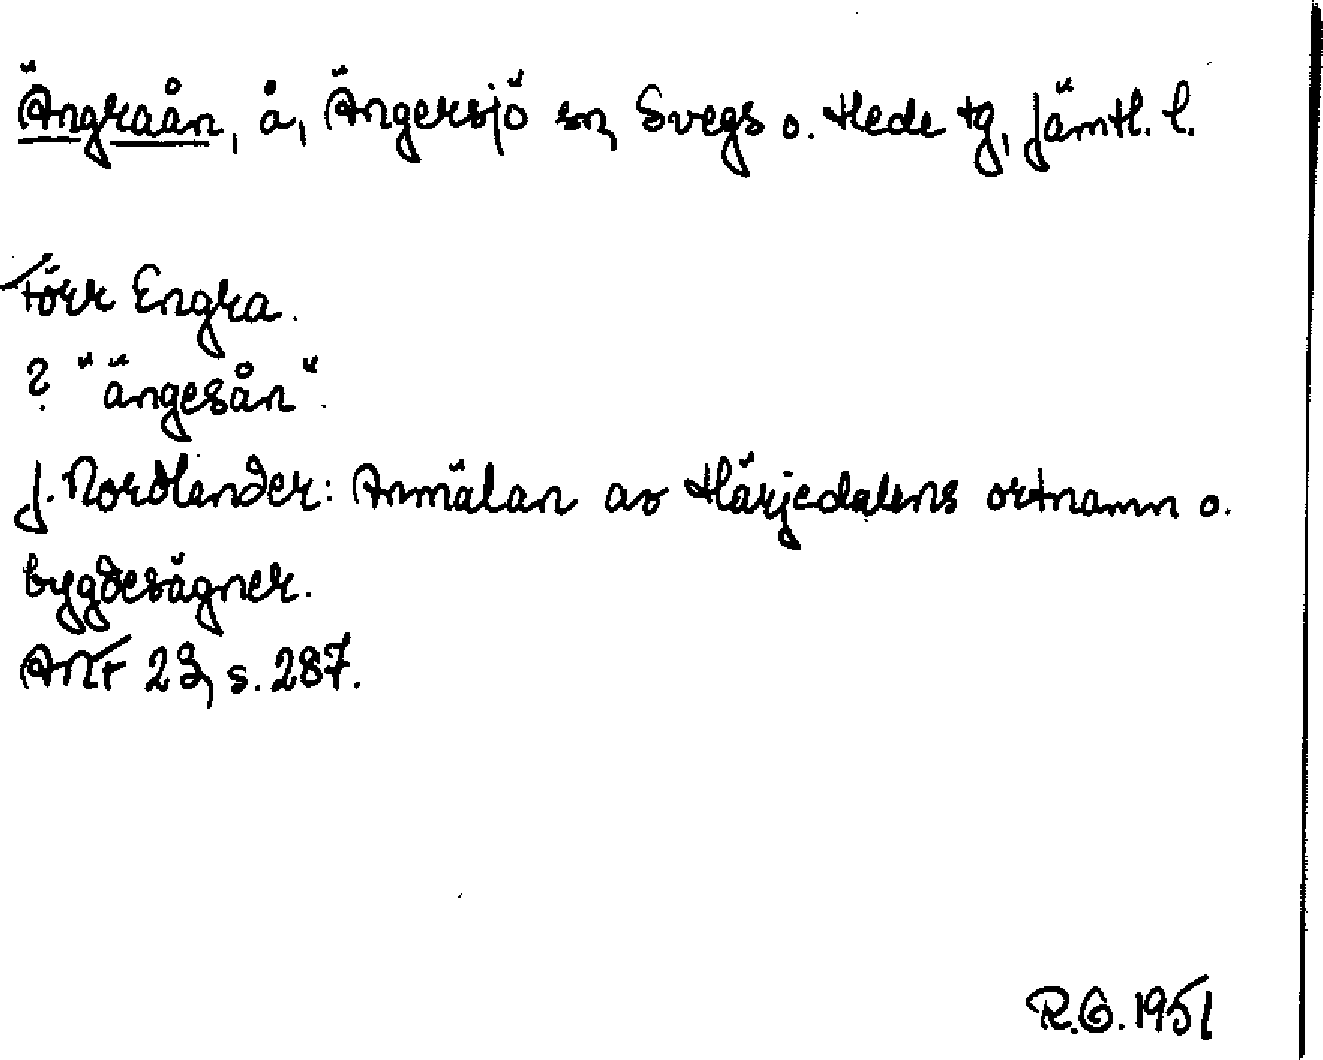 Ängraån, å, Ängersjö sn, Svegs o. Hede tg, Jämtl. l.
Förr Engra.
? "ängesån".
J. Nordlander: Anmälan av Härjedalens ortnamn o.
bygdesägner.
ANF 23, s. 287.
R.G. 1951